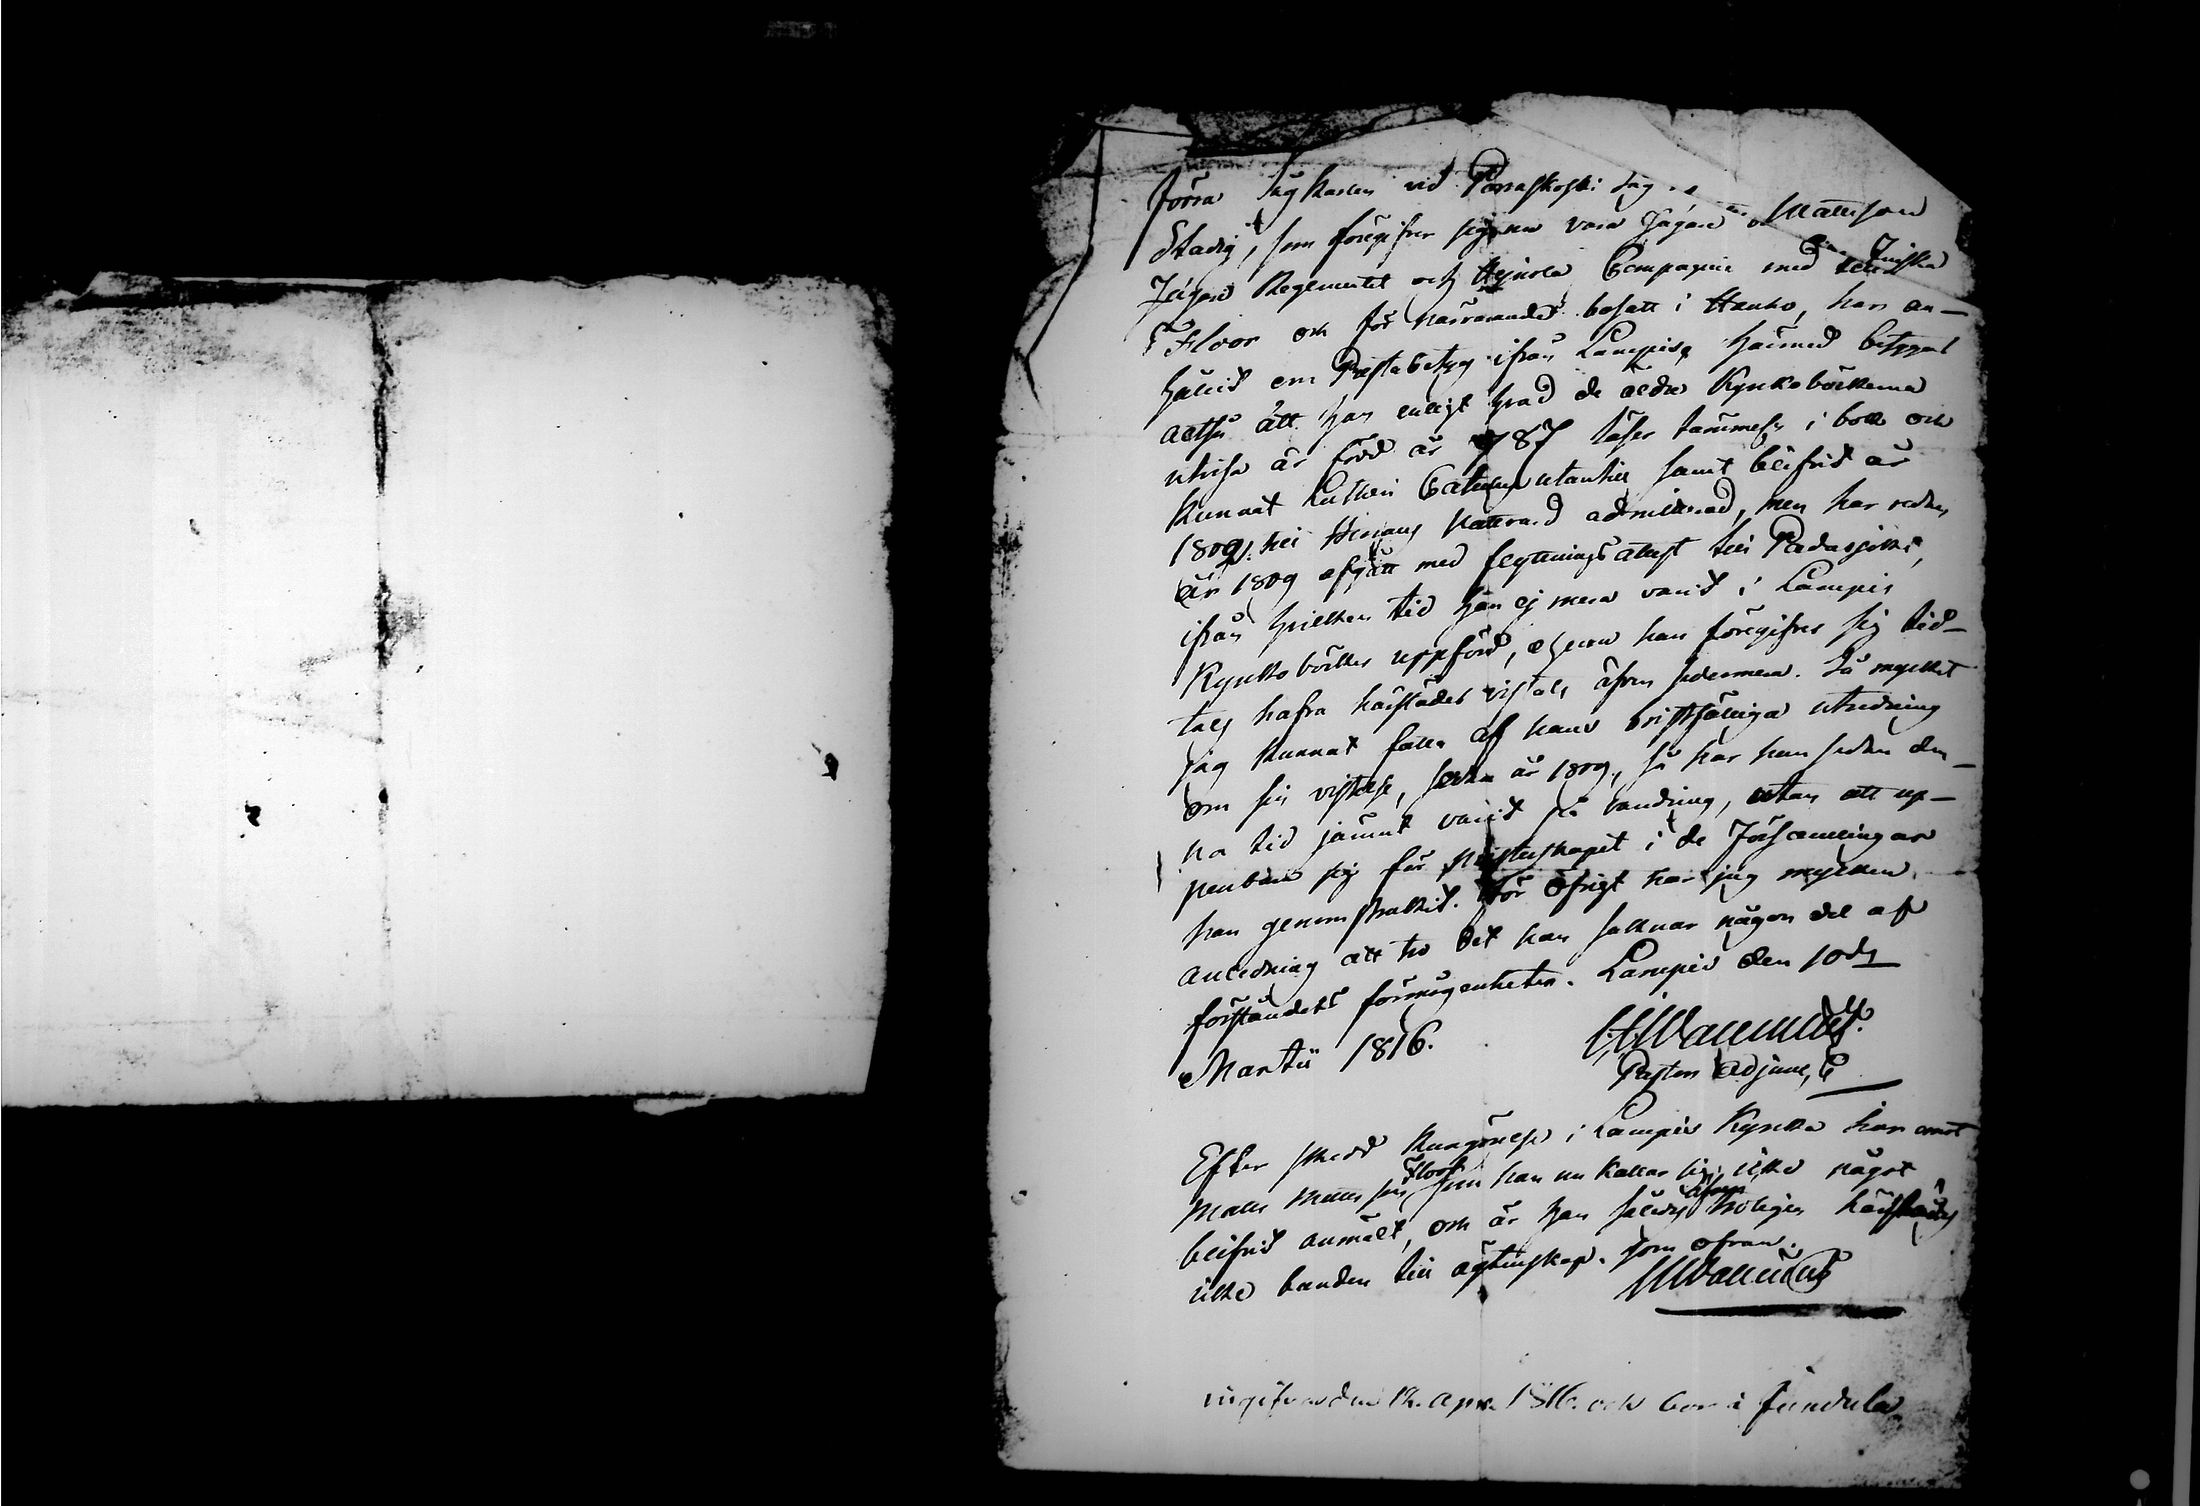 Förra Sågkarlen vid Porraskoski Såg Mattsson
Stadig, som föregifver sig nu vara Jägare vid Finska
Jägare Regementet och Hejnola Compagnie med
Floor och för närvarande bosatt i Hauho, har an-
hållit om Prestabetyg ifrån Lampis, hvarmed betygas
altså att han enligt hvad de äldre Kyrkoböckerna
utvisa är född år 787 läser tämmel. i bok och
kunnat Lutheri Cateches utantill samt blifvit år
1809 till Herrans Nattvard admitterad, men har redan
år 1809 afgått med flyttningsattest till Padasjoki,
ifrån hvilken tid han ej mera varit i Lampis
Kyrkoböcker uppförd, ehuru han föregifver sig tid-
tals hafva härstädes vistats äfven sedermera. Så mycket
jag kunnat fatta af hans vidtsfälliga utredning
om sin vistelse, sedan år 1809, så har han sedan den-
na tid jämnt varit på vandring, utan att up-
penbara sig för Presterskapet i de Församlingar
han genomstrukit. För öfrigt har jag mycken
anledning att tro det han saknar någon del af
förståndets förmögenheter. Lampis den 10de
Martii 1816.
Wallenius
Pastors Adjunct
Efter skedd kungörelse i Lampis Kyrka har emot
Matts Matts son Floor som han nu kallar sig, icke något
blifvit anmält, och är han således äfven troligen härstädes
icke bunden till ägtenskap. Som ofvan.
Wallenius
vigifvna den 12. Apr. 1816. och bor i